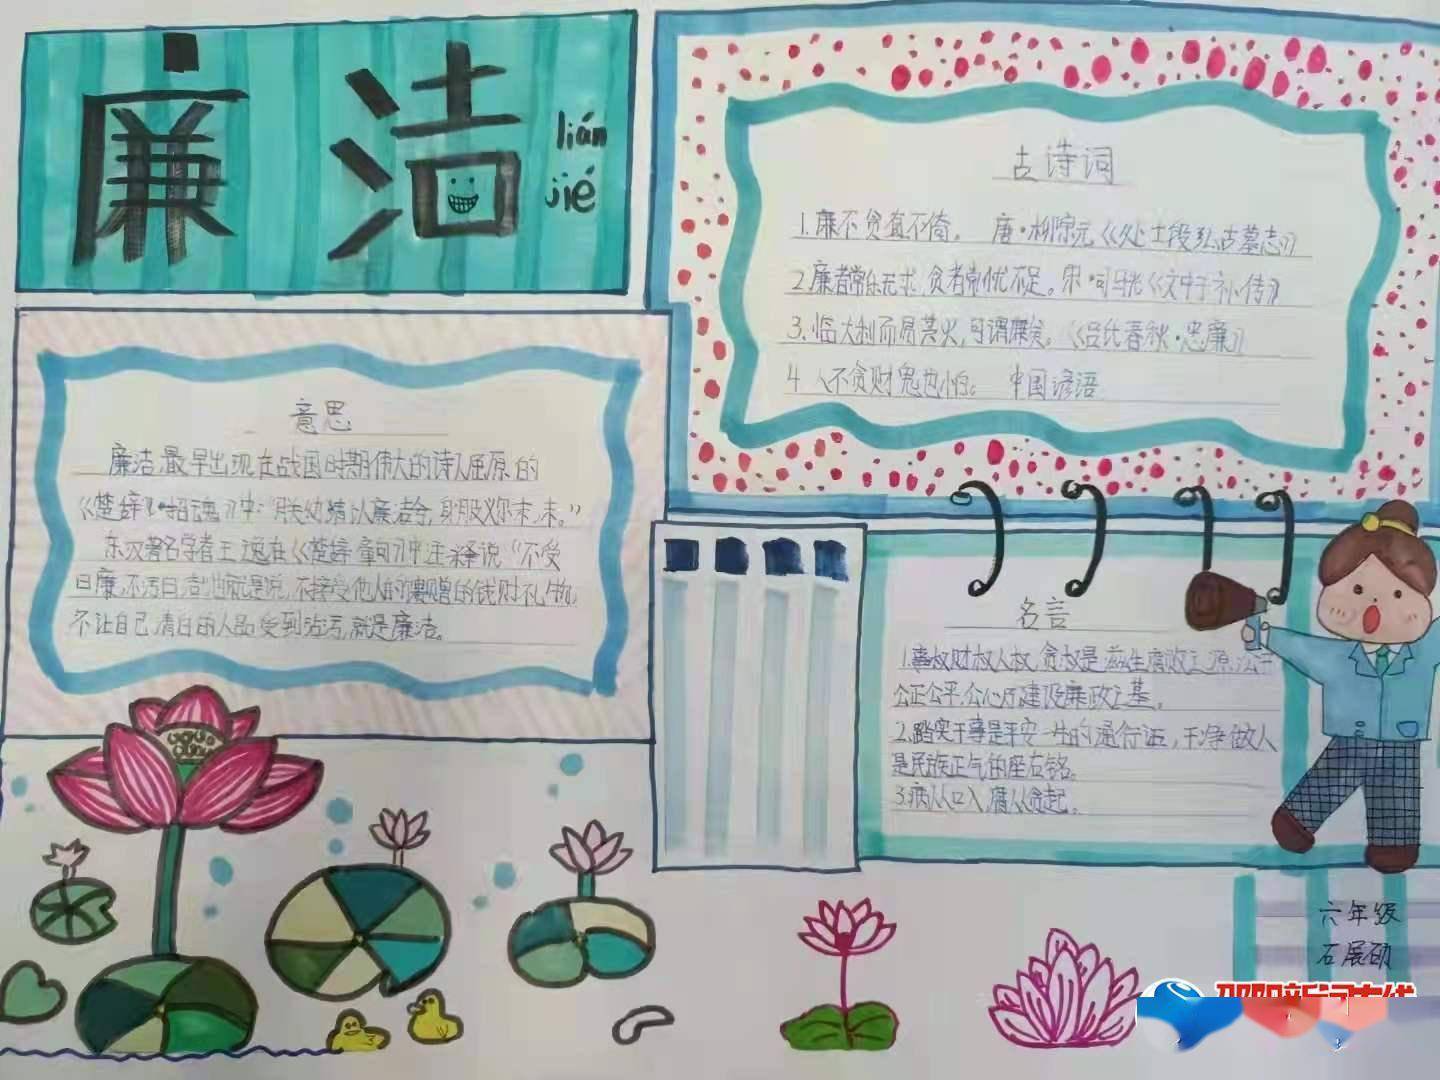 廉洁
lián
jié
古诗词
1.廉不贪直不倚。 唐·柳宗元《处士段弘古墓志》
2.廉者常乐无求,贪者常忧不足。宋·司马光《文中子补传》
3.临大利而易其义,可谓廉矣。《吕氏春秋·忠廉》
4 人不贪财鬼也怕。 中国谚语
意思
廉洁,最早出现在战国时期伟大的诗人屈原的
《楚辞·招魂》中:"朕幼清以廉洁兮,身服义尔未沫。"
东汉著名学者王逸在《楚辞·章句》中注释说"不受
曰廉,不污曰洁"也就是说,不接受他人的馈赠的钱财礼物,
不让自己清白的人品受到沾污,就是廉洁。
名言
公正公平,公心乃建设廉政之基。
2.踏实干事是平安一生的通行证,干净做人
是民族正气的座右铭。
3.病从口入,腐从贪起。
六年级
石展硕